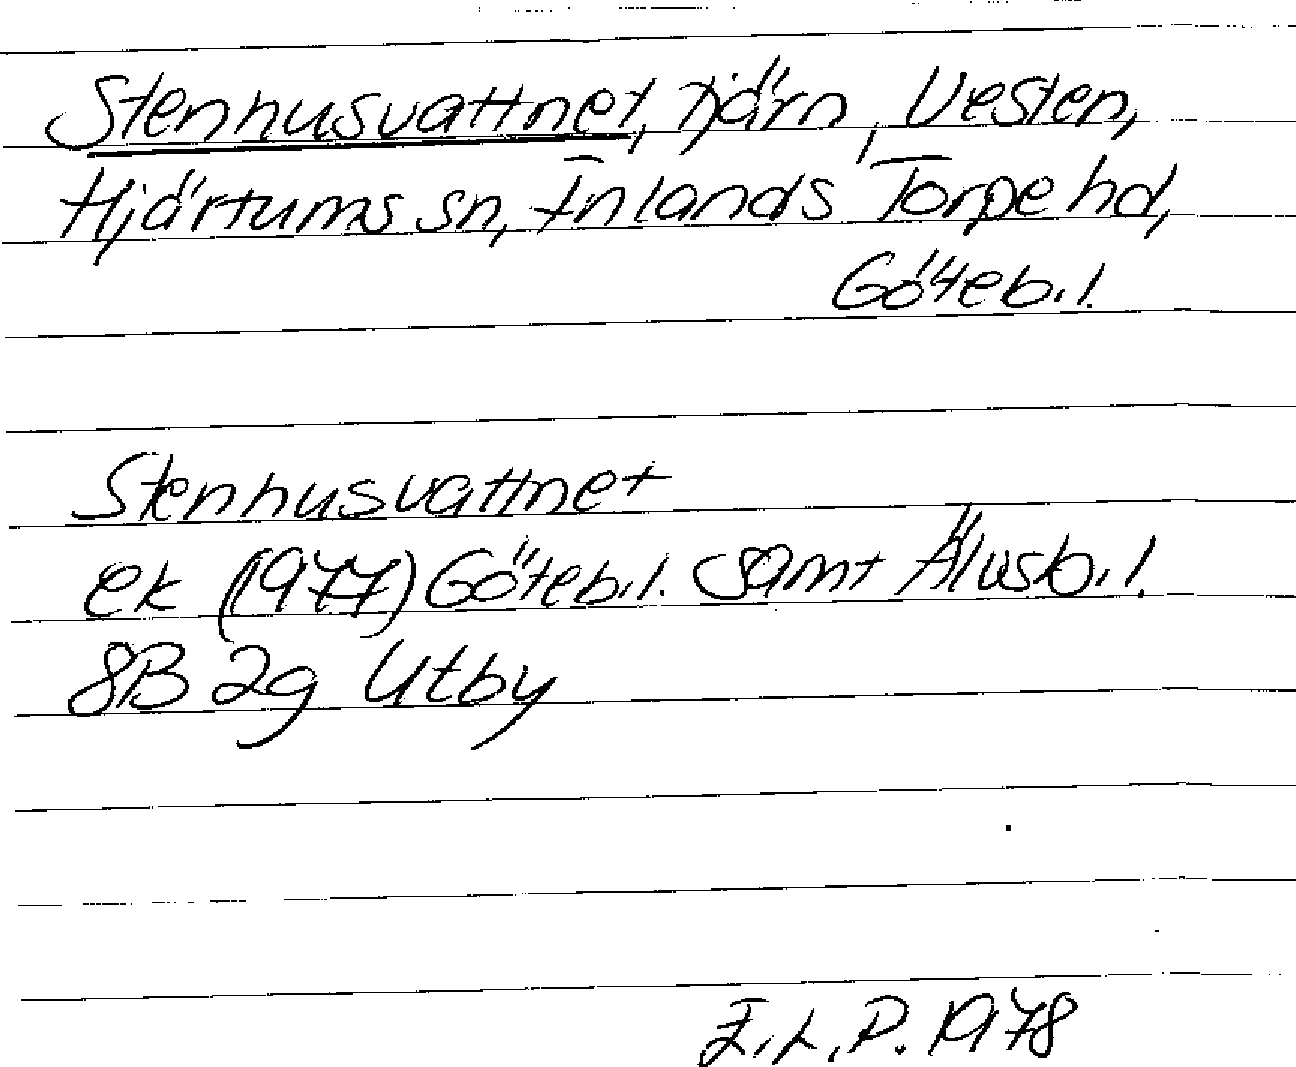 Stenhusvattnet, tjärn, Vesten,
Hjärtums sn, Inlands Torpe hd,
Göteb.l.
Stenhusvattnet
ek (1977) Göteb.l. samt Älvsb.l.
8B 2g Utby
I.L.P. 1978